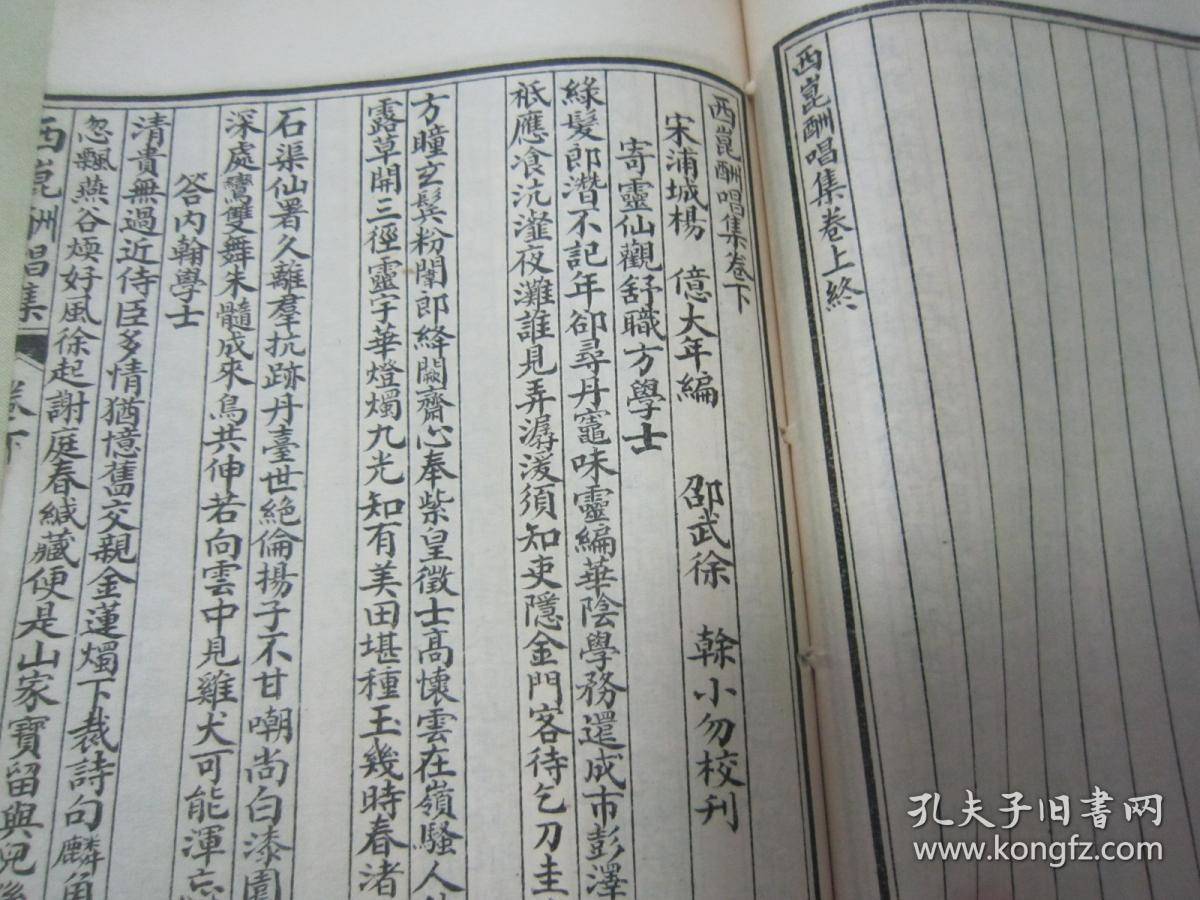 西崑酬唱集卷上終
西崑酬唱集卷下
宋浦城楊　億大年編　邵武徐　榦小勿校刊
寄靈仙觀舒職方學士
綠髮郎潛不記年卻尋丹竈味靈編華陰學務還成市彭澤
祇應飡沆瀣夜灘誰見弄潺湲須知吏隱金門客待乞刀圭
方瞳玄鬂粉闈郎絳闕齋心奉紫皇徵士高懷雲在嶺騷人
露草開三徑靈宇華燈燭九光知有美田堪種玉幾時春渚
石渠仙署久離羣抗跡丹臺世絕倫揚子不甘嘲尚白漆園
深處鸞雙舞朱髓成來鳥共伸若向雲中見雞犬可能渾忘
答內翰學士
清貴無過近侍臣多情猶憶舊交親金蓮燭下裁詩句麟角
忽飄燕谷煗好風徐起謝庭春緘藏便是山家寶留與兒
西崑酬唱集
卷下
孔夫子旧书网
www.kongfz.com